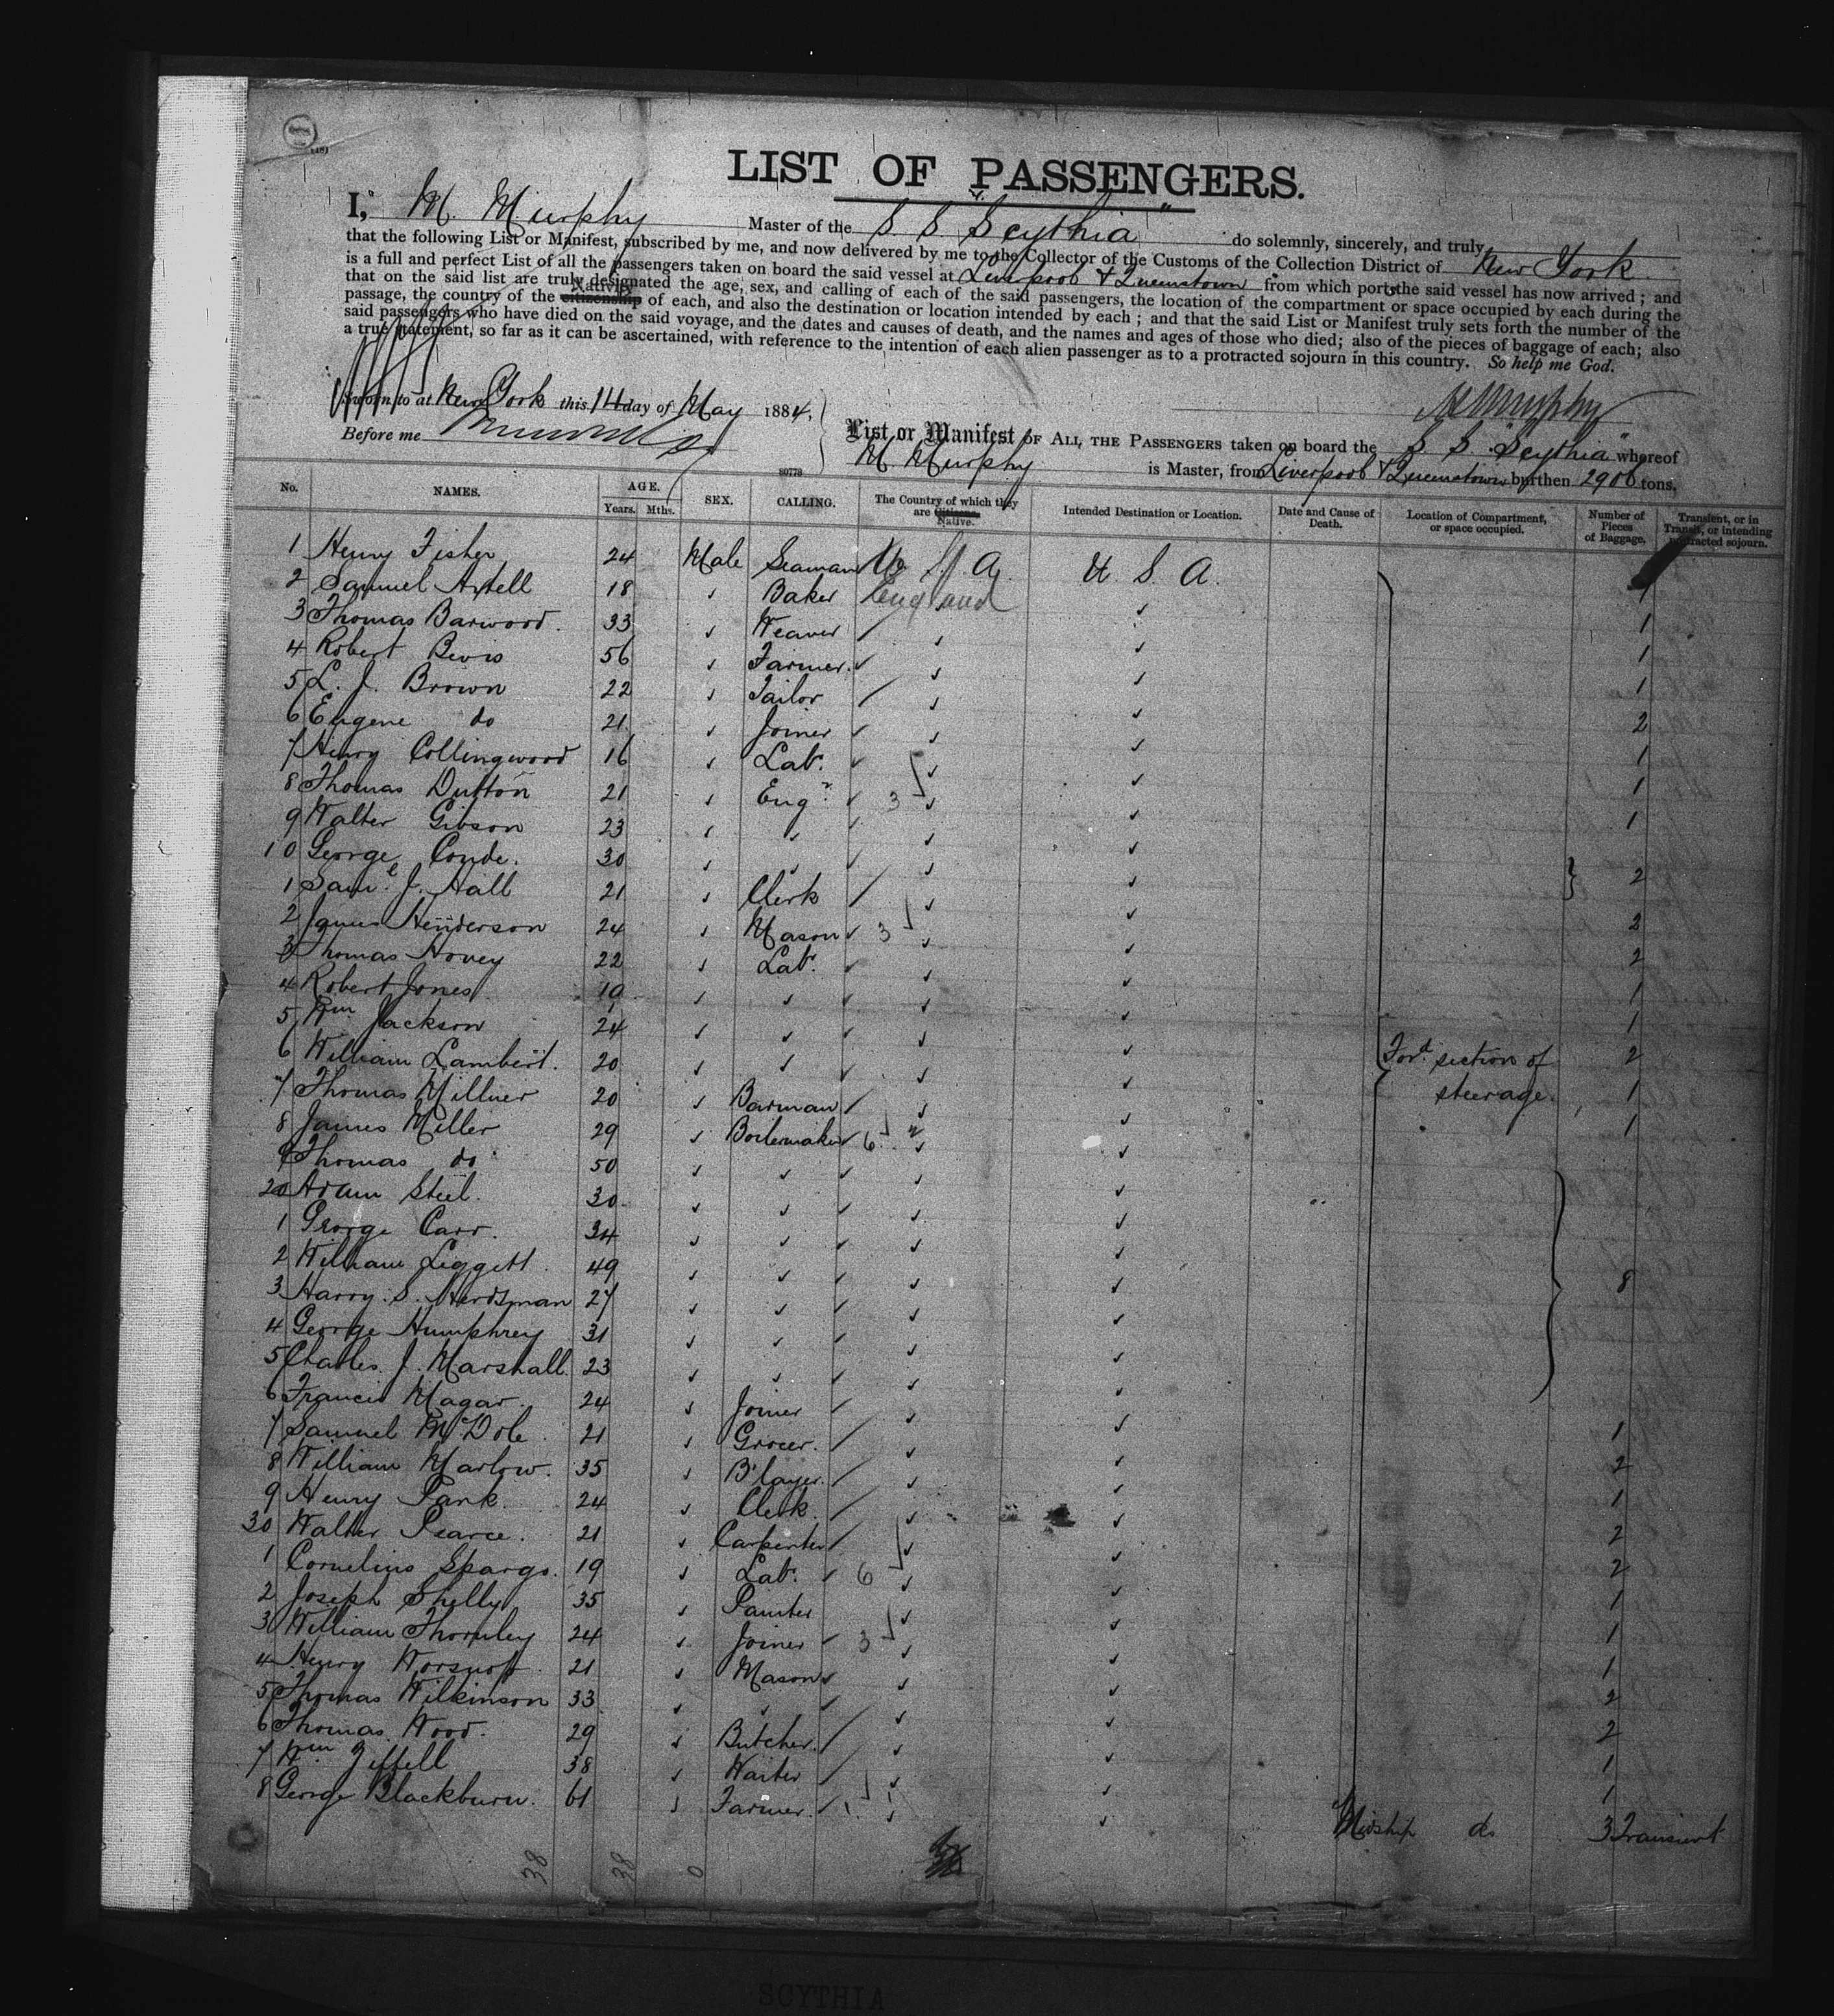 LIST OF PASSENGERS.
I, M. Murphy Master of the S. S. "Scythia" do solemnly, sincerely, and truly
that the following List or Manifest, subscribed by me, and now delivered by me to the Collector of the Customs of the Collection District of New York
is a full and perfect List of all the passengers taken on board the said vessel at Liverpool & Queenstown from which ports the said vessel has now arrived; and
that on the said list are truly designated the age, sex, and calling of each of the said passengers, the location of the compartment or space occupied by each during the
Native
passage, the country of the citizenship of each, and also the destination or location intended by each; and that the said List or Manifest truly sets forth the number of the
said passengers who have died on the said voyage, and the dates and causes of death, and the names and ages of those who died; also of the pieces of baggage of each; also
a true statement, so far as it can be ascertained, with reference to the intention of each alien passenger as to a protracted sojourn in this country. So help me God.
Sworn to at New York this 14 day of May 1884,
M Murphy
Before me
List or Manifest OF ALL THE PASSENGERS taken on board the S. S. "Scythia" whereof
M Murphy is Master, from Liverpool & Queenstown burthen 2906 tons,
80778
No. NAMES. AGE. Years. Mths. SEX. CALLING. The Country of which they are Citizens. Native. Intended Destination or Location. Date and Cause of Death. Location of Compartment, or space occupied. Number of Pieces of Baggage. Transient, or in Transit, or intending protracted sojourn.
1 Henry Fisher 24 Male Seaman U. S. A. U. S. A.
2 Samuel Axtell 18 Baker England
3 Thomas Barwood. 33 Weaver 1
4 Robert Bevis 56 Farmer. 1
5 L. J. Brown 22 Tailor 1
6 Eugene do 21 Joiner 2
7 Henry Collingwood 16 Labr. 1
8 Thomas Dutton 21 Engr. 3 1
9 Walter Gibson 23 1
10 George Conde. 30
1 Saml. J. Hall 21 Clerk 2
2 James Henderson 24 Mason 3 2
3 Thomas Hovey 22 Labr. 2
4 Robert Jones 19 1
5 Wm Jackson 24 1
6 William Lambert. 20 Ford section of 2
7 Thomas Millner 20 Barman steerage. 1
8 James Miller 29 Boilermaker 6 1
9 Thomas do 50
20 Adam Steel. 30
1 George Carr. 34
2 William Liggett. 49
3 Harry. S. Herdsman 27 8
4 George Humphrey 31
5 Charles. J. Marshall. 23
6 Francis Magar. 24 Joiner
7 Samuel McDole. 21 Grocer. 1
8 William Marlow. 35 B'layer. 2
9 Henry Park. 24 Clerk. 1
30 Walter Pearce. 21 Carpenter 2
1 Cornelius Spargo. 19 Labr. 6 2
2 Joseph Shelly 35 Painter 1
3 William Thornley 24 Joiner 3 1
4 Henry Worsnop. 21 Mason 1
5 Thomas Wilkinson 33 2
6 Thomas Wood. 29 Butcher. 2
7 Wm Ziffell 38 Waiter 1
8 George Blackburn. 61 Farmer. 1
Midship do 3 Transient
38 38 0
SCYTHIA